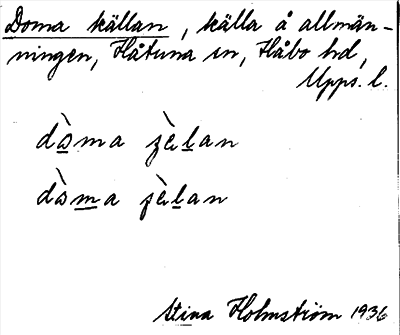 Doma källan, källa å allmän-
ningen, Håtuna sn, Håbo hd,
Upps. l.
dòma ʒèlan
dòma ʃèlan
Stina Holmström 1936